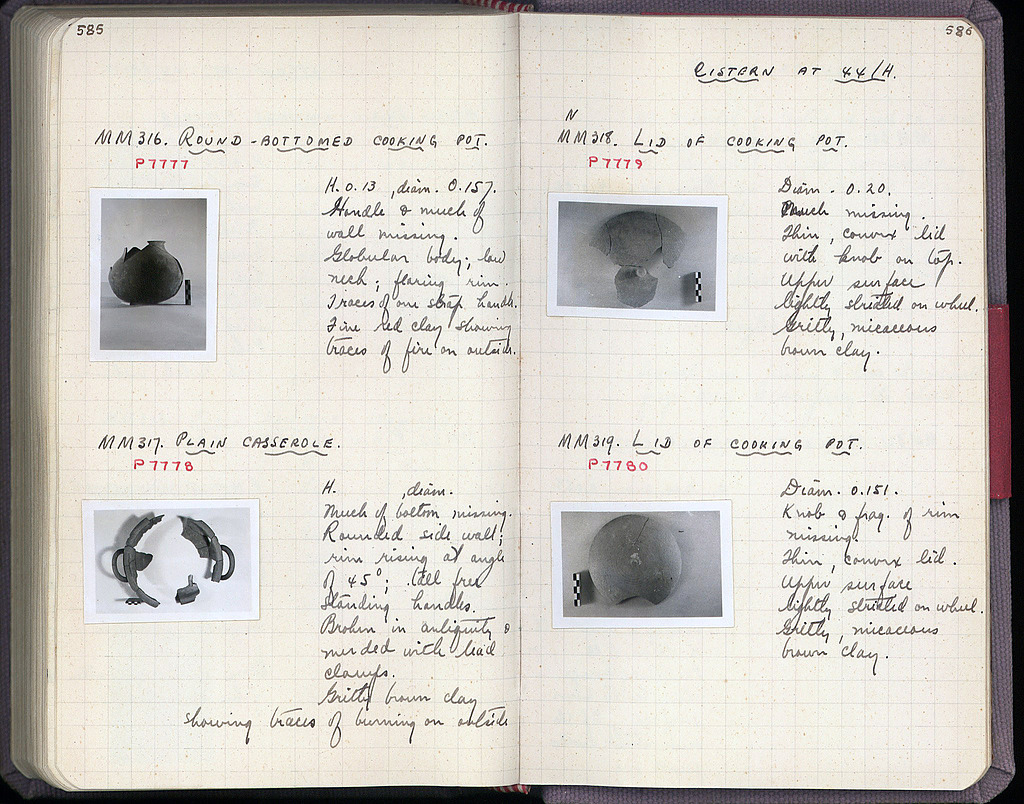 585
MM316. ROUND-BOTTOMED COOKING POT.
P7777
H. 0.13, diam. 0.157.
Handle & much of
wall missing.
Globular body; low
neck; flaring rim.
Traces of one strap handle.
Fine red clay showing
traces of fire on outside.
MM317. PLAIN CASSEROLE.
P7778
H. , diam.
Much of bottom missing.
Rounded side wall;
rim rising at angle
of 45°; tall free
standing handles.
Broken in antiquity &
mended with lead
clamps.
Gritty brown clay
showing traces of burning on outside
586
CISTERN AT 44/H.
N
MM318. LID OF COOKING POT.
P7779
Diam. 0.20.
Much missing.
Thin, convex lid
with knob on top.
Upper surface
lightly striated on wheel.
Gritty, micaceous
brown clay.
MM319. LID OF COOKING POT.
P7780
Diam. 0.151.
Knob & frag. of rim
missing.
Thin, convex lid.
Upper surface
lightly striated on wheel.
Gritty, micaceous
brown clay.